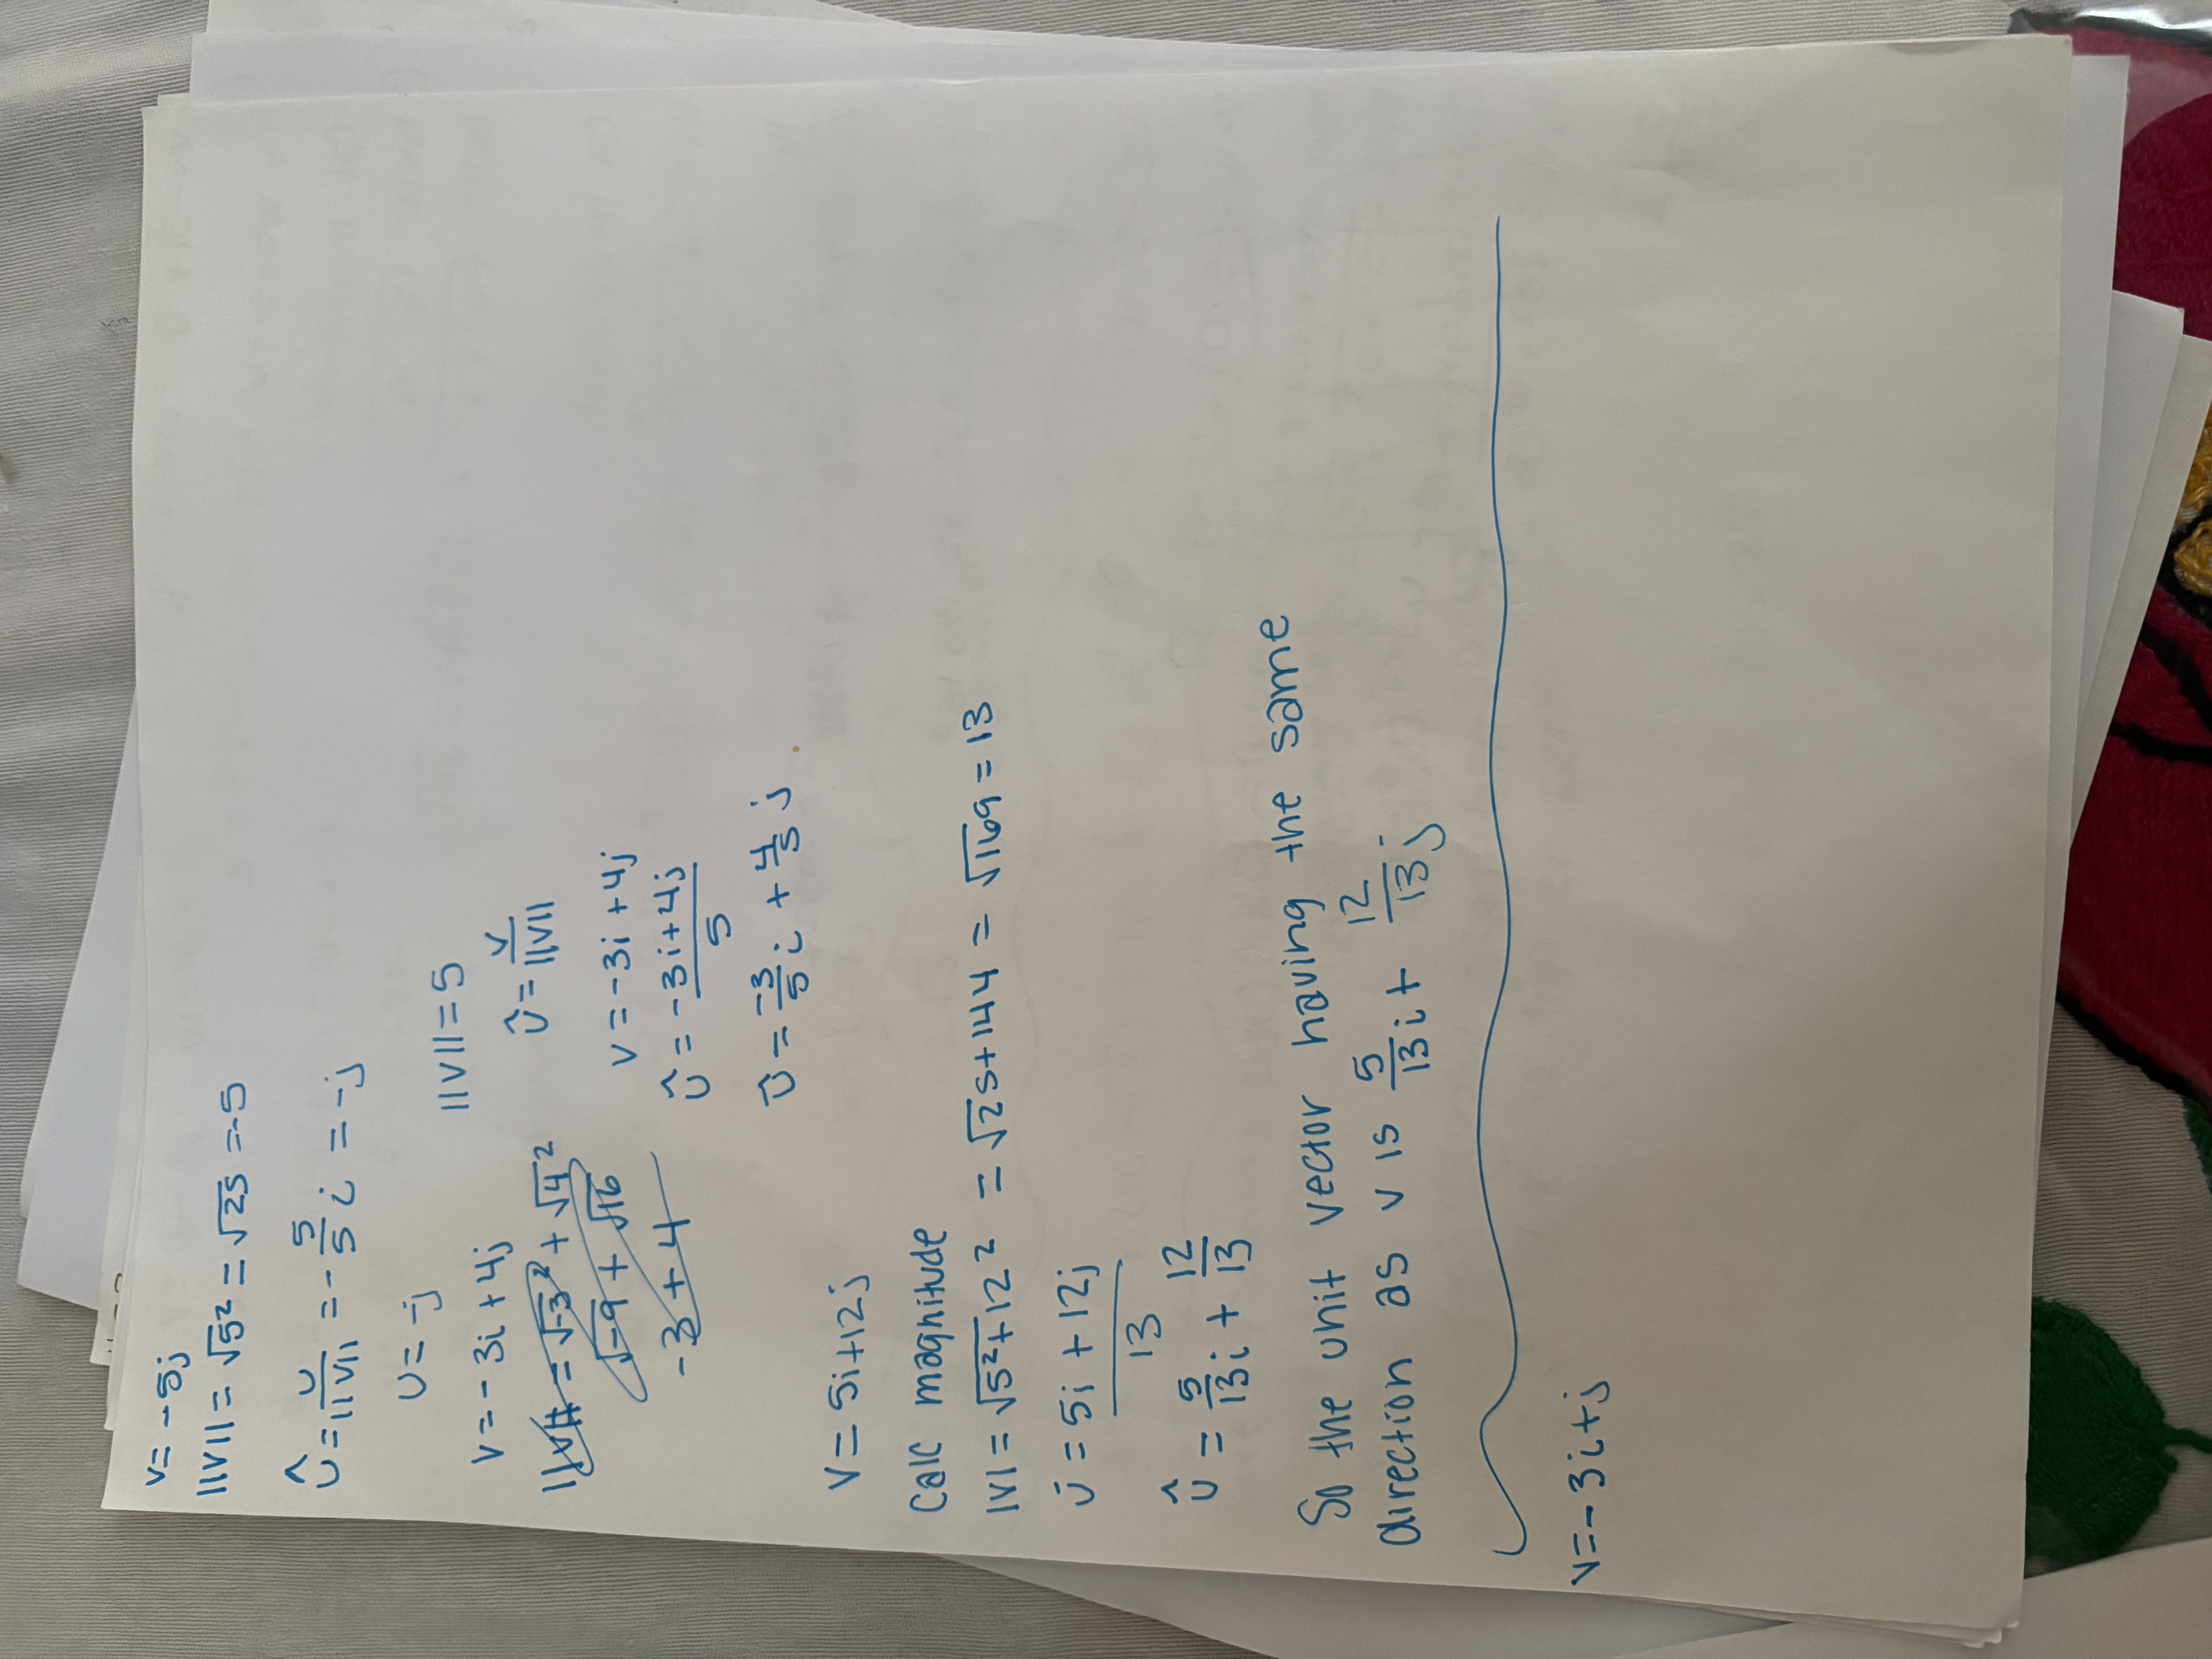 v = -5j
||v|| = √5² = √25 = -5
û = v/||v|| = - 5/5 i = -j
u = -j
v = -3i + 4j
||v|| = √-3² + √4²
√-9 + √16
-3 + 4
||v|| = 5
û = v/||v||
v = -3i + 4j
û = -3i+4j/5
û = -3/5 i + 4/5 j
v = 5i+12j
Calc magnitude
|v| = √5²+12² = √25+144 = √169 = 13
u = 5i + 12j/13
û = 5/13 i + 12/13
So the unit vector having the same
direction as v is 5/13 i + 12/13 j
v = -3i+j